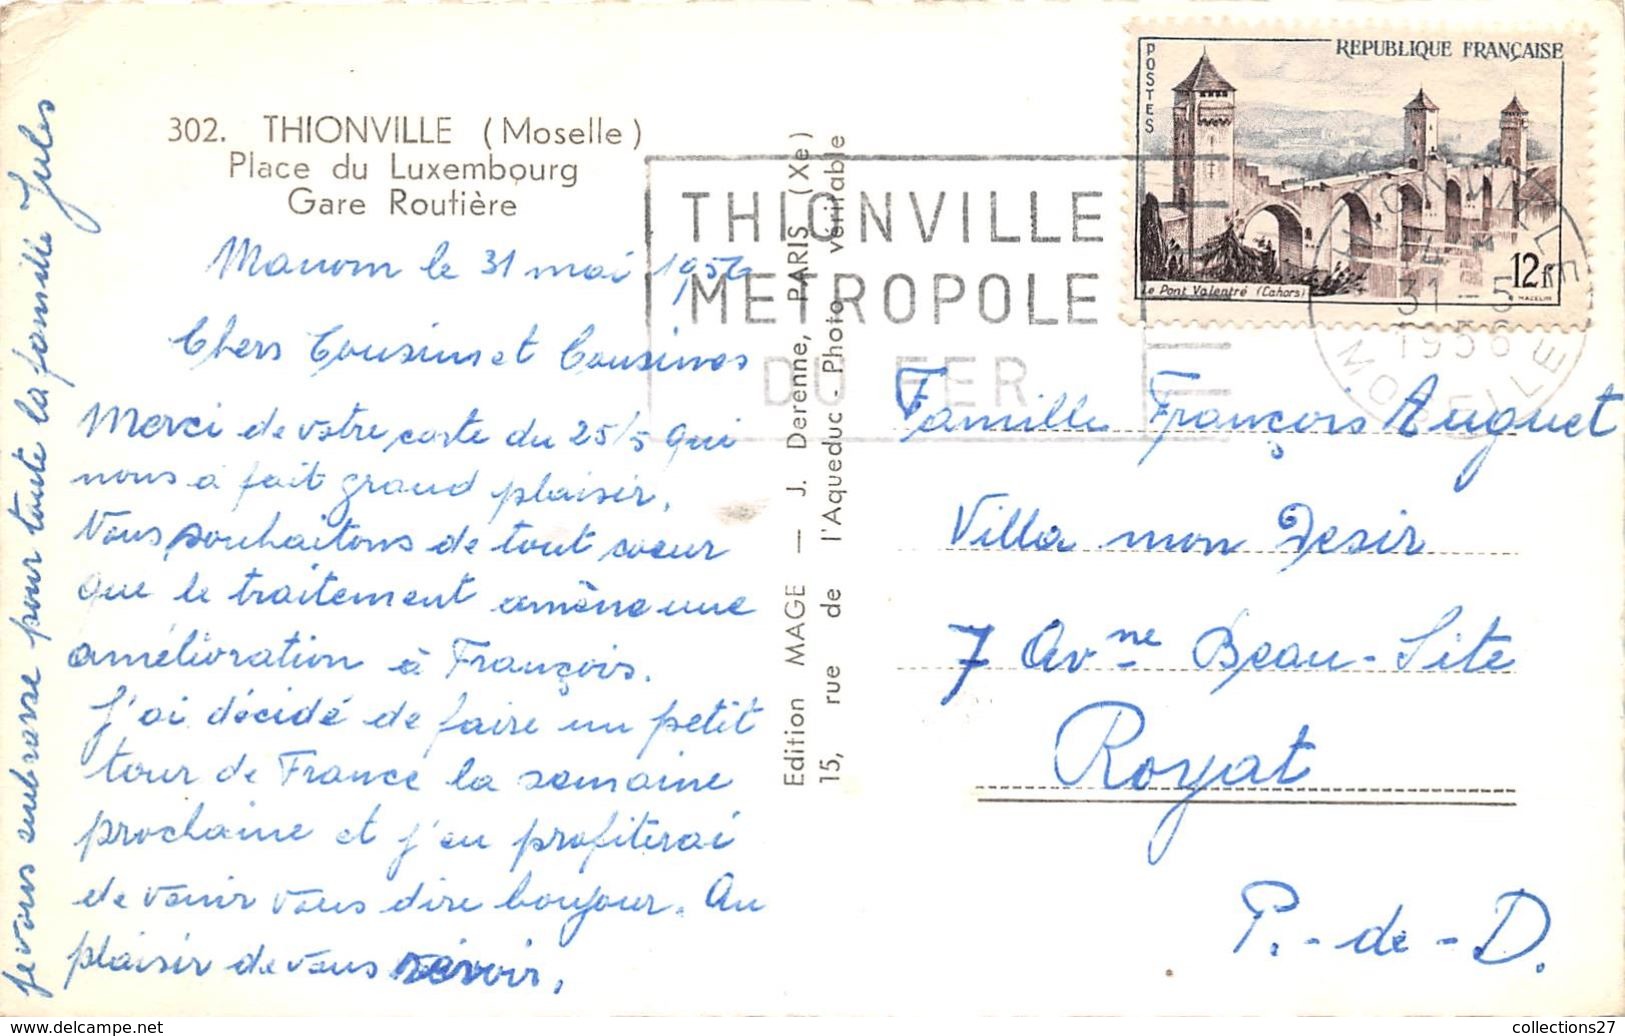 302. THIONVILLE (Moselle)
Place du Luxembourg
Gare Routière
Manom le 31 mai 1956
Chers Cousins et Cousines
Merci de votre carte du 25/5 qui
nous a fait grand plaisir.
Vous souhaitons de tout coeur
que le traitement amène une
amélioration à François.
J'ai décidé de faire un petit
tour de France la semaine
prochaine et j'en profiterai
de venir vous dire bonjour. Au
plaisir de vous revoir,
je vous embrasse pour toute la famille Jules
Edition MAGE — J. Derenne, PARIS (Xe)
15, rue de l'Aqueduc - Photo véritable
THIONVILLE
METROPOLE
DU FER
POSTES
REPUBLIQUE FRANÇAISE
Le Pont Valentré (Cahors)
12F
MAZELIN
THIONVILLE
31 - 5
1956
MOSELLE
Famille François Auguet
Villa mon Desir
7 Avne Beau-Site
Royat
P.-de-D.
collections27